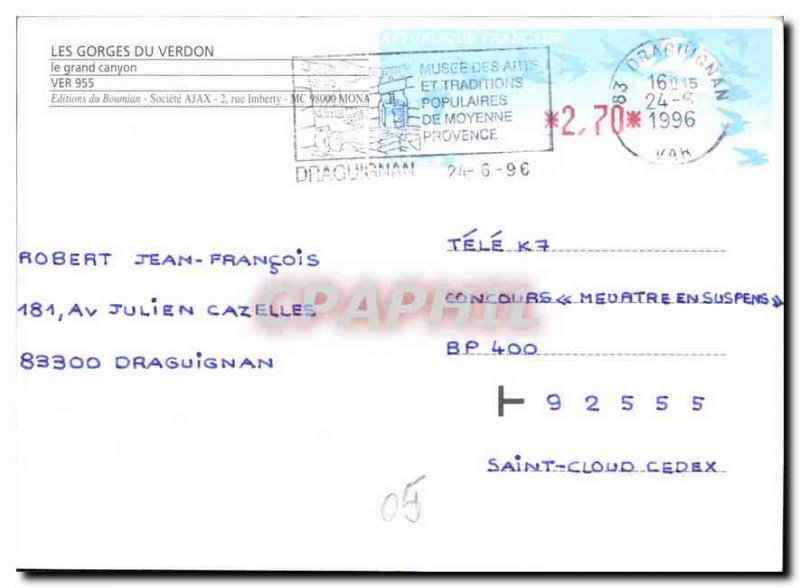 LES GORGES DU VERDON
le grand canyon
VER 955
Editions du Boumian - Société AJAX - 2, rue Imberty - MC 98000 MONA
RÉPUBLIQUE FRANÇAISE
MUSEE DES ARTS
ET TRADITIONS
POPULAIRES
DE MOYENNE
PROVENCE
DRAGUIGNAN 24-6-96
*2,70*
83 DRAGUIGNAN
16H15
24-6
1996
VAR
ROBERT JEAN-FRANÇOIS
181, AV JULIEN CAZELLES
83300 DRAGUIGNAN
TÉLÉ K7
CONCOURS « MEURTRE EN SUSPENS »
BP 400
92555
SAINT-CLOUD CEDEX
CPAPHIL
05